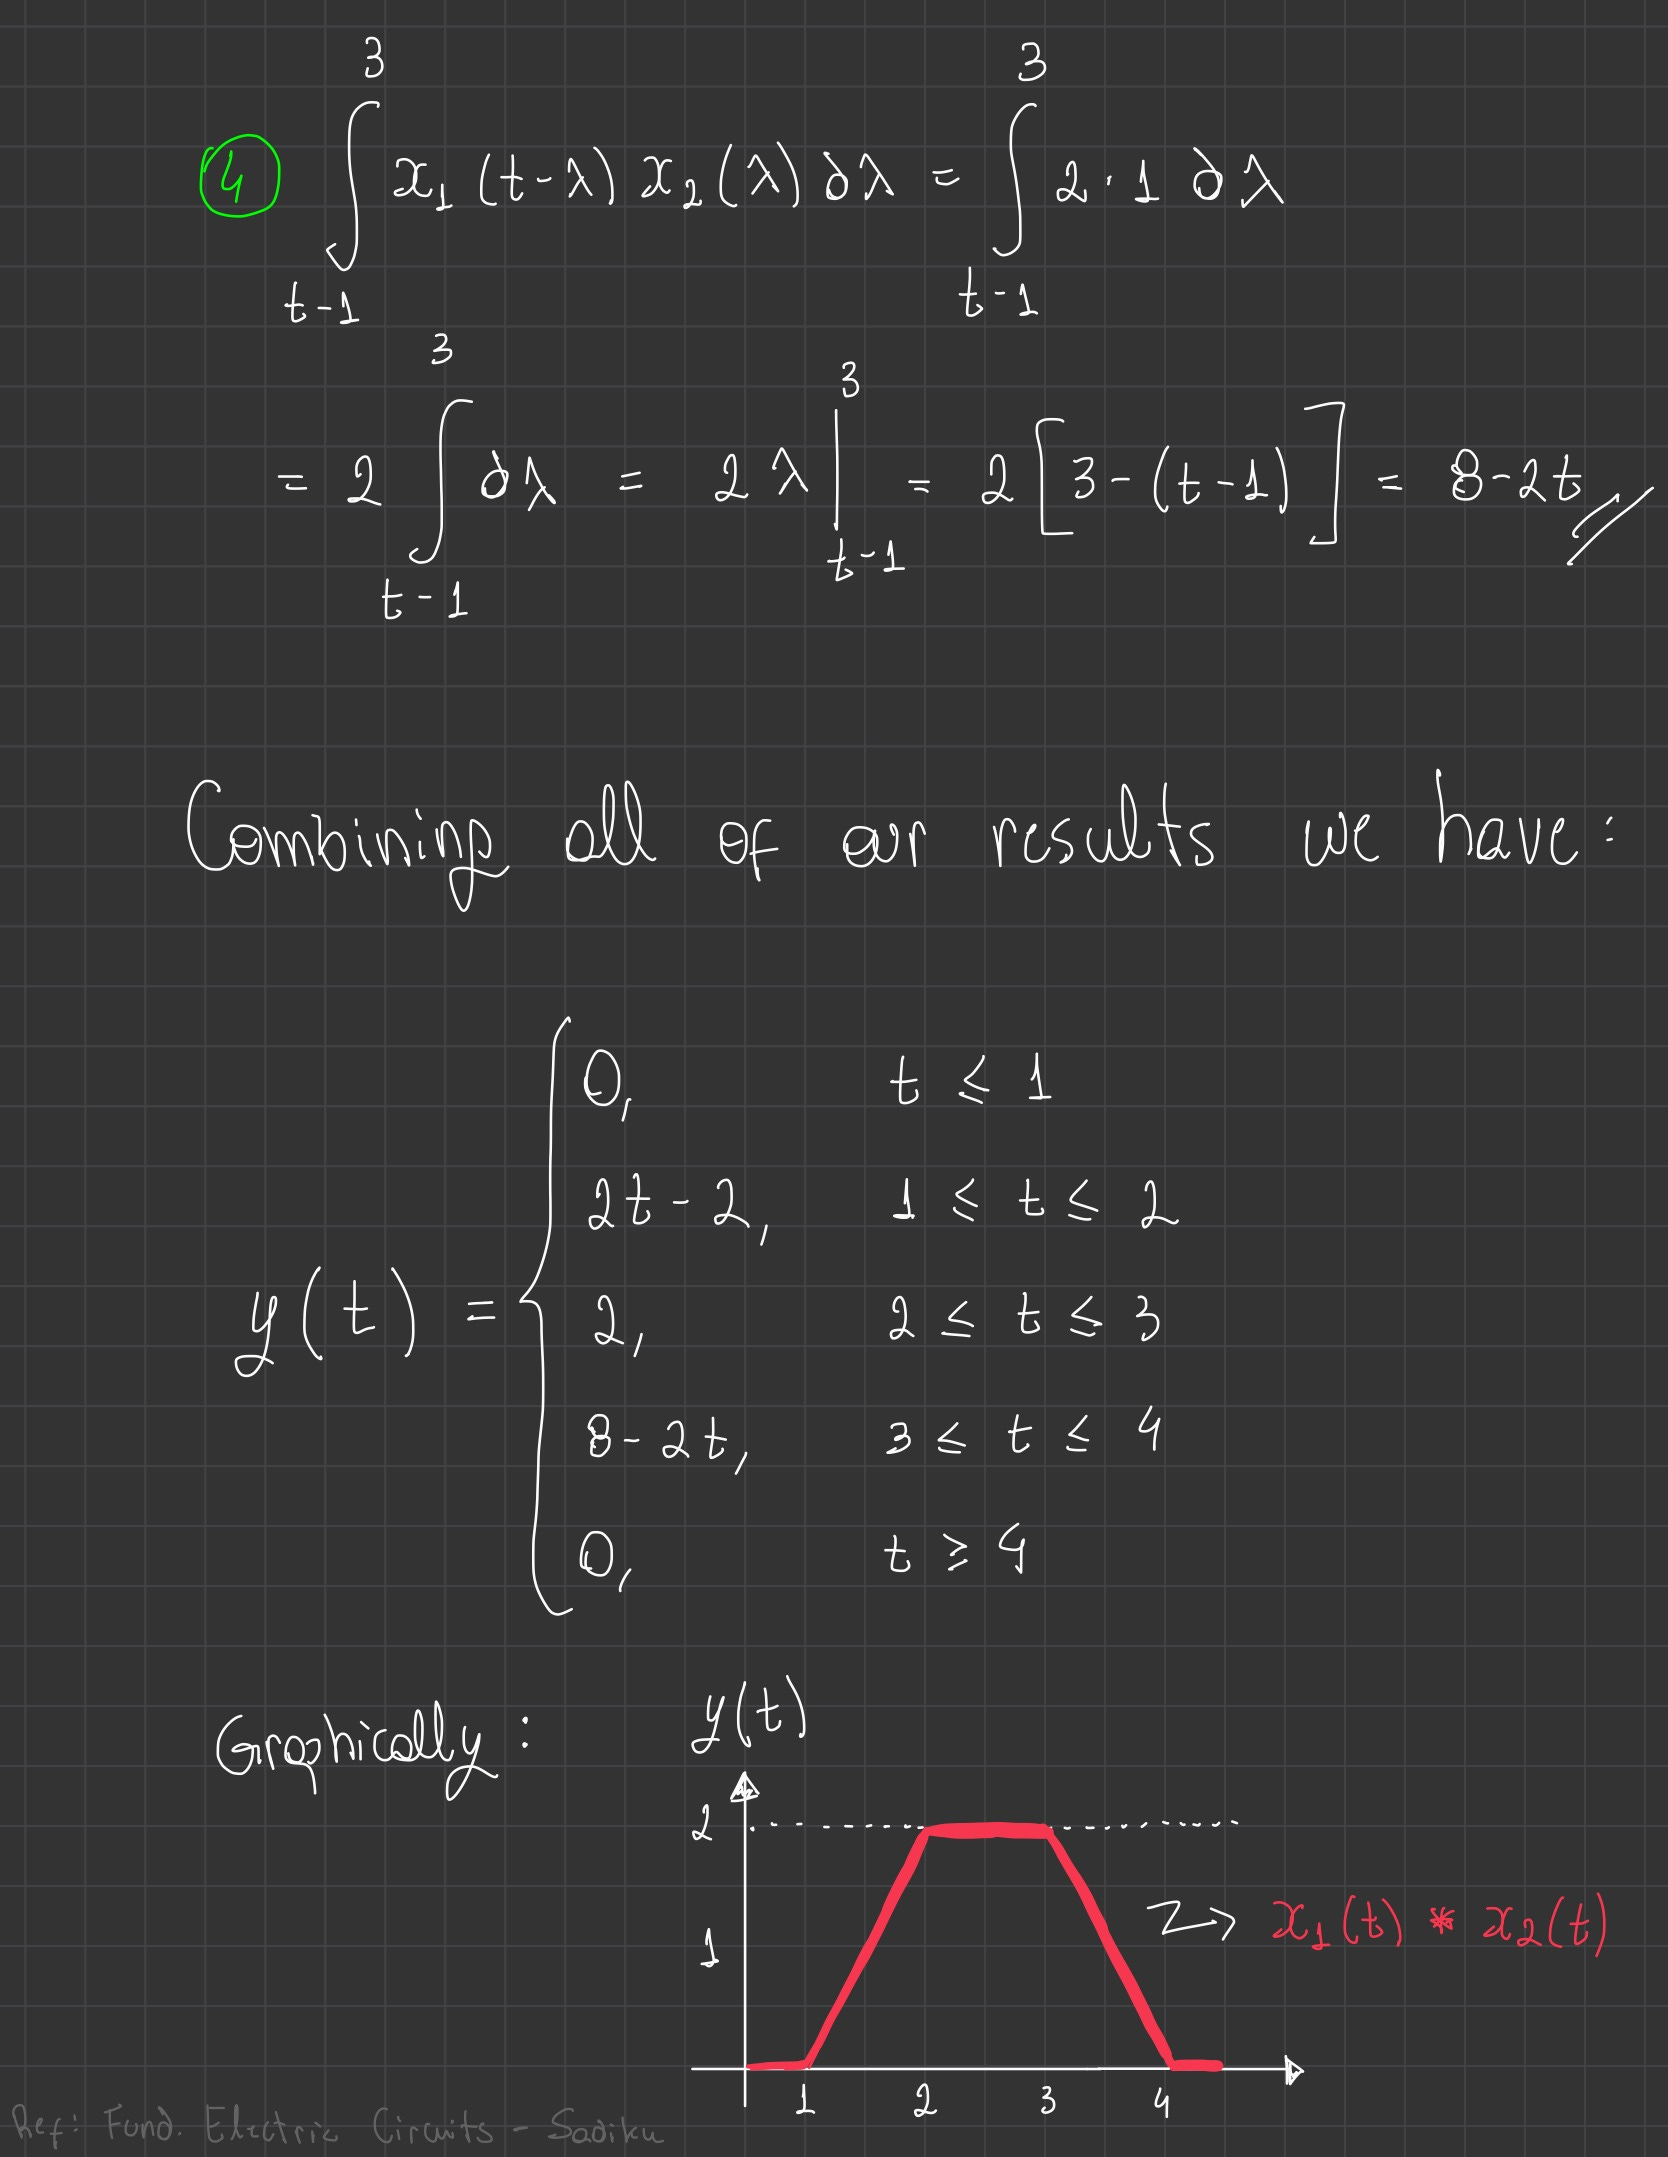 ④ ∫_{t-1}^{3} x₁(t-λ) x₂(λ) dλ = ∫_{t-1}^{3} 2·1 dλ
= 2 ∫_{t-1}^{3} dλ = 2λ |_{t-1}^{3} = 2[3-(t-1)] = 8-2t
Combining all of our results we have:
y(t) =
0, t ≤ 1
2t-2, 1 ≤ t ≤ 2
2, 2 ≤ t ≤ 3
8-2t, 3 ≤ t ≤ 4
0, t ≥ 4
Graphically:
y(t)
2
1
x₁(t) * x₂(t)
1 2 3 4
Ref: Fund. Electric Circuits - Sadiku